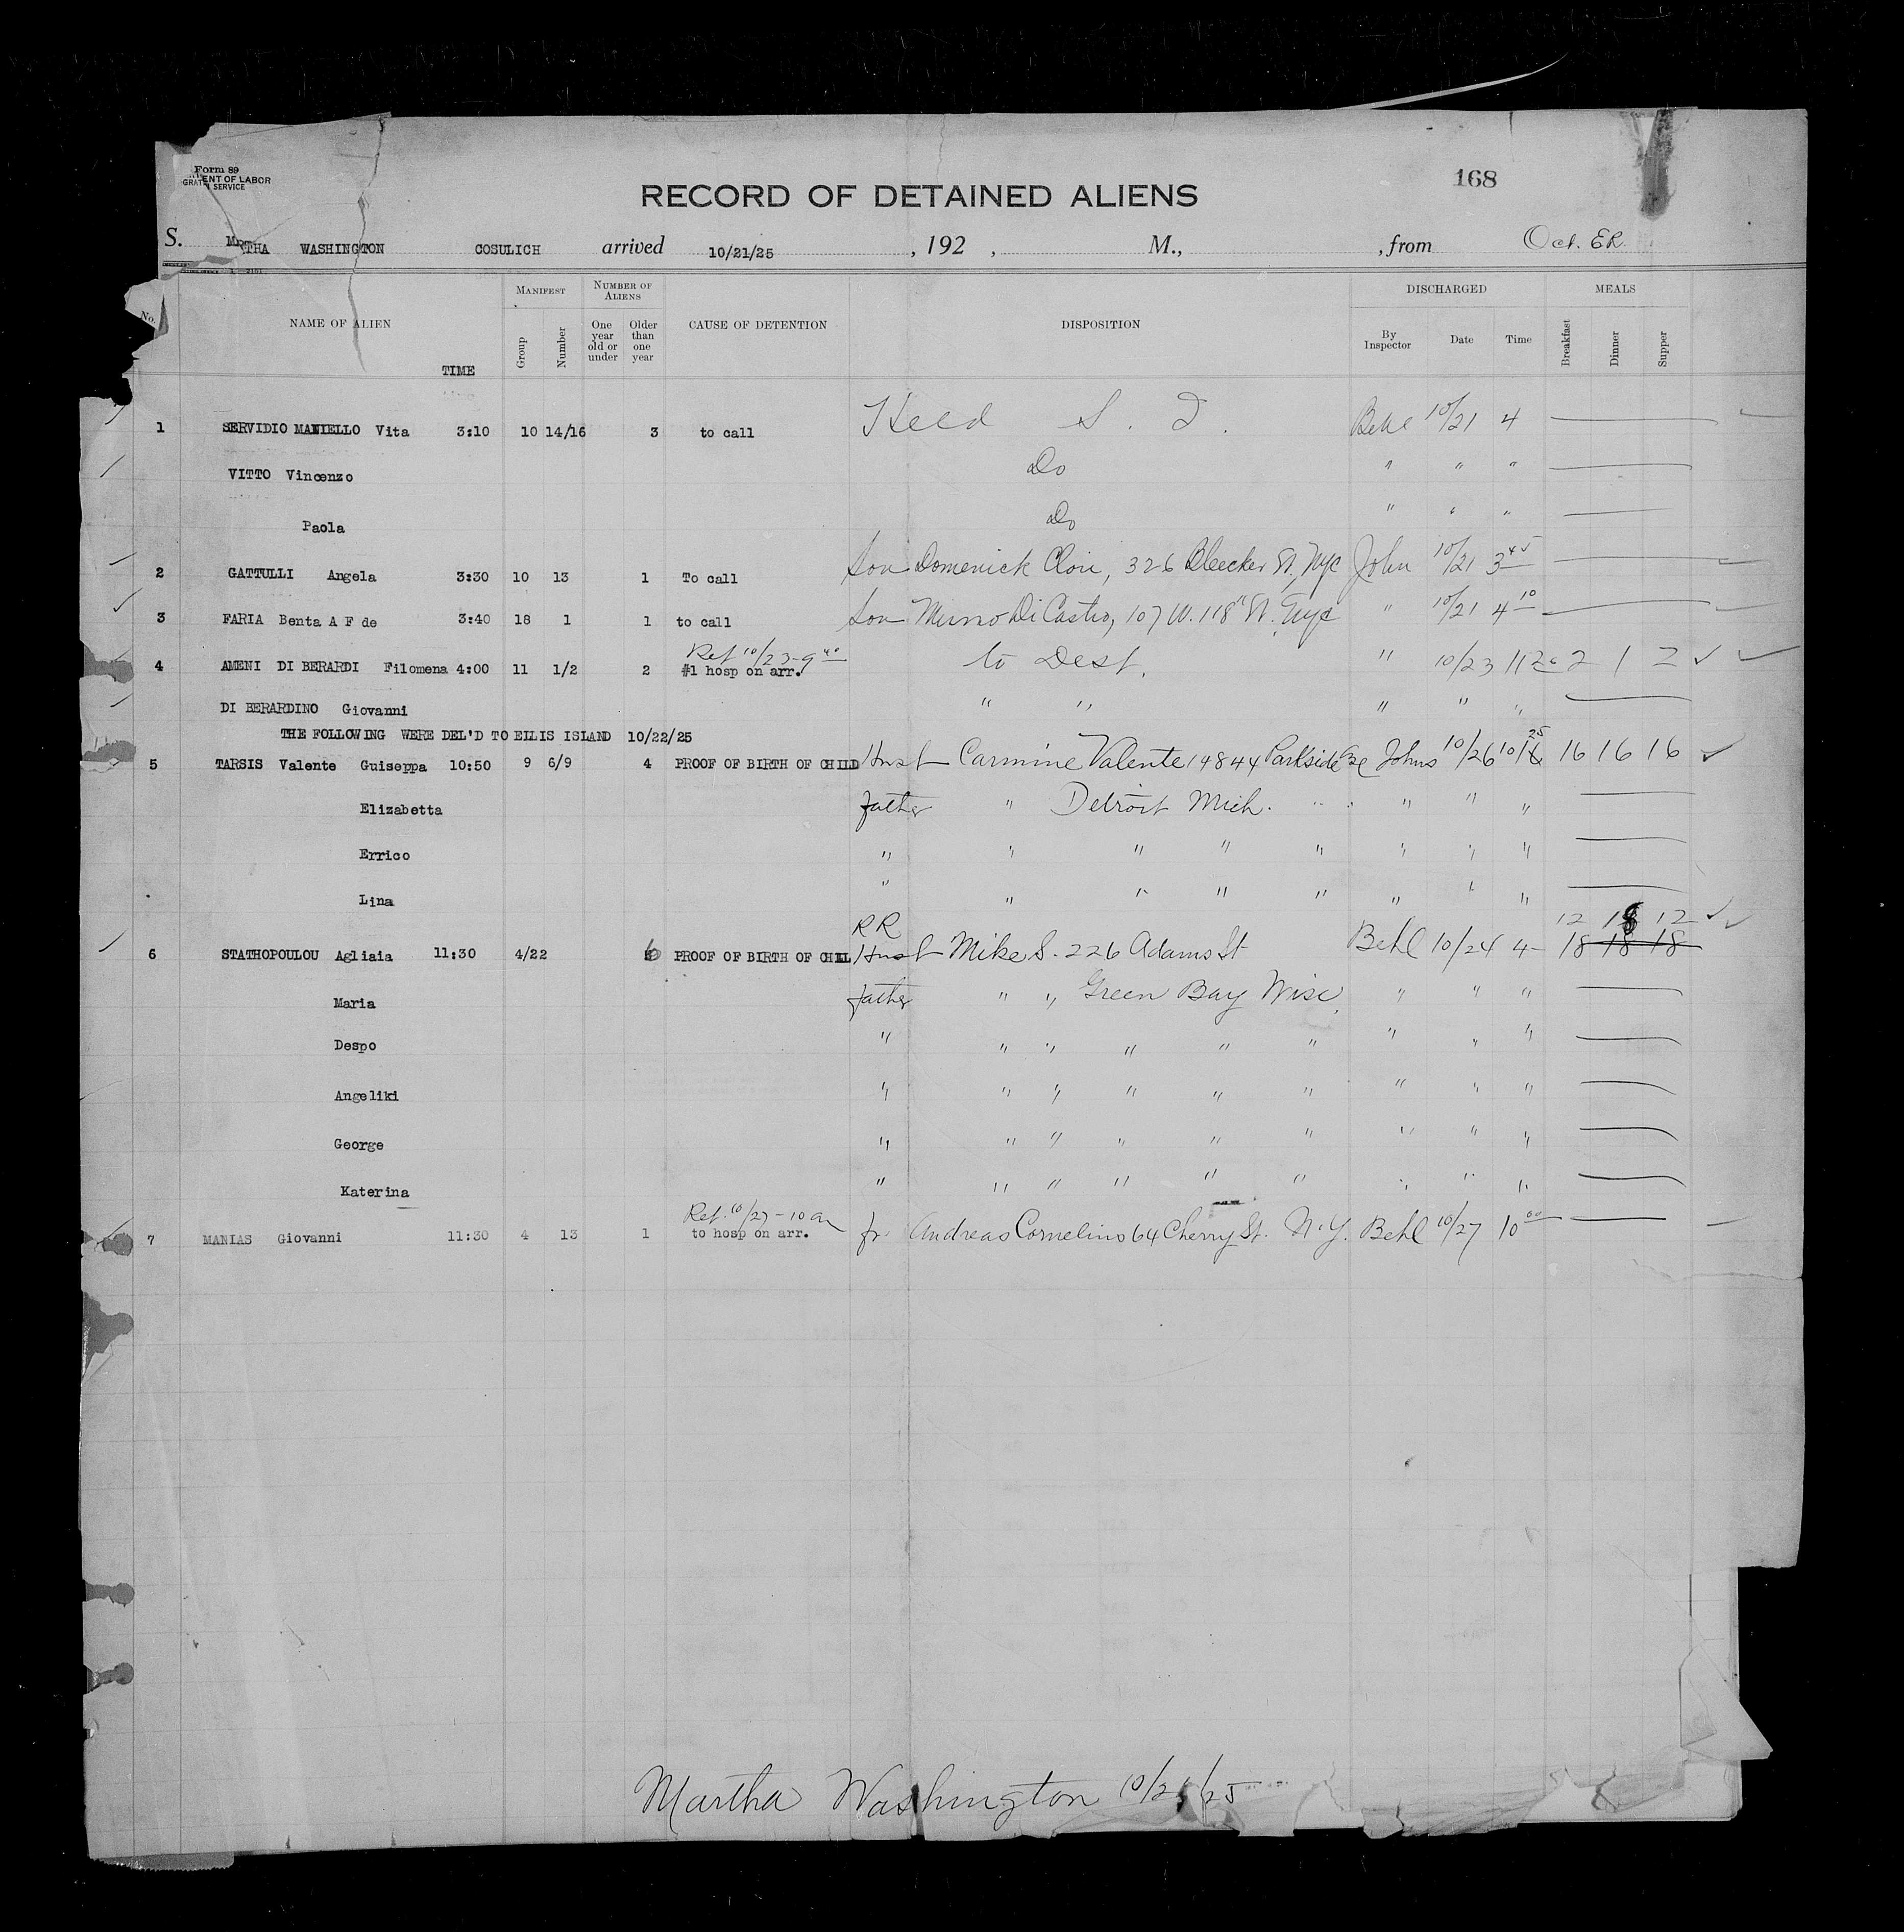 Form 89
ENT OF LABOR
SERVICE
168
RECORD OF DETAINED ALIENS
S. THA WASHINGTON COSULICH arrived 10/21/25 , 192 , M., , from Oct. E.R.
No. NAME OF ALIEN TIME MANIFEST Group Number NUMBER OF ALIENS One year old or under Older than one year CAUSE OF DETENTION DISPOSITION DISCHARGED By Inspector Date Time MEALS Breakfast Dinner Supper
1 SERVIDIO MANIELLO Vita 3:10 10 14/16 3 to call Held S. I. 10/21 4
VITTO Vincenzo Do " " "
Paola Do " " "
2 GATTULLI Angela 3:30 10 13 1 To call Son Domenick 326 Bleecker St. Nyc John 10/21 3 45
3 FARIA Benta A F de 3:40 18 1 1 to call Son Di Castro, 107 W. 118" St. Nyc " 10/21 4 10
Ret 10/23-9 40
4 AMENI DI BERARDI Filomena 4:00 11 1/2 2 #1 hosp on arr. to Dest. " 10/23 11 20 2 1 2
DI BERARDINO Giovanni " " " " "
THE FOLLOWING WERE DEL'D TO ELLIS ISLAND 10/22/25
5 TARSIS Valente Guiseppa 10:50 9 6/9 4 PROOF OF BIRTH OF CHILD Husb Carmine Valente 14844 Parkside Johns 10/26 10 25 16 16 16
Elizabetta father " Detroit Mich. " " "
Errico " " " " " " " "
Lina " " " " " " " "
RR 12 18 12
6 STATHOPOULOU Agliaia 11:30 4/22 6 PROOF OF BIRTH OF CHIL Husb Mike S. 226 Adams St Behl 10/24 4- 18 18 18
Maria father " " Green Bay Wisc. " " "
Despo " " " " " " " " "
Angeliki " " " " " " " " "
George " " " " " " " " "
Katerina " " " " " " " " "
Ret. 10/27-10 am
7 MANIAS Giovanni 11:30 4 13 1 to hosp on arr. fr. Andreas Cornelius 64 Cherry St. N.Y. Behl 10/27 10 00
Martha Washington 10/21/25